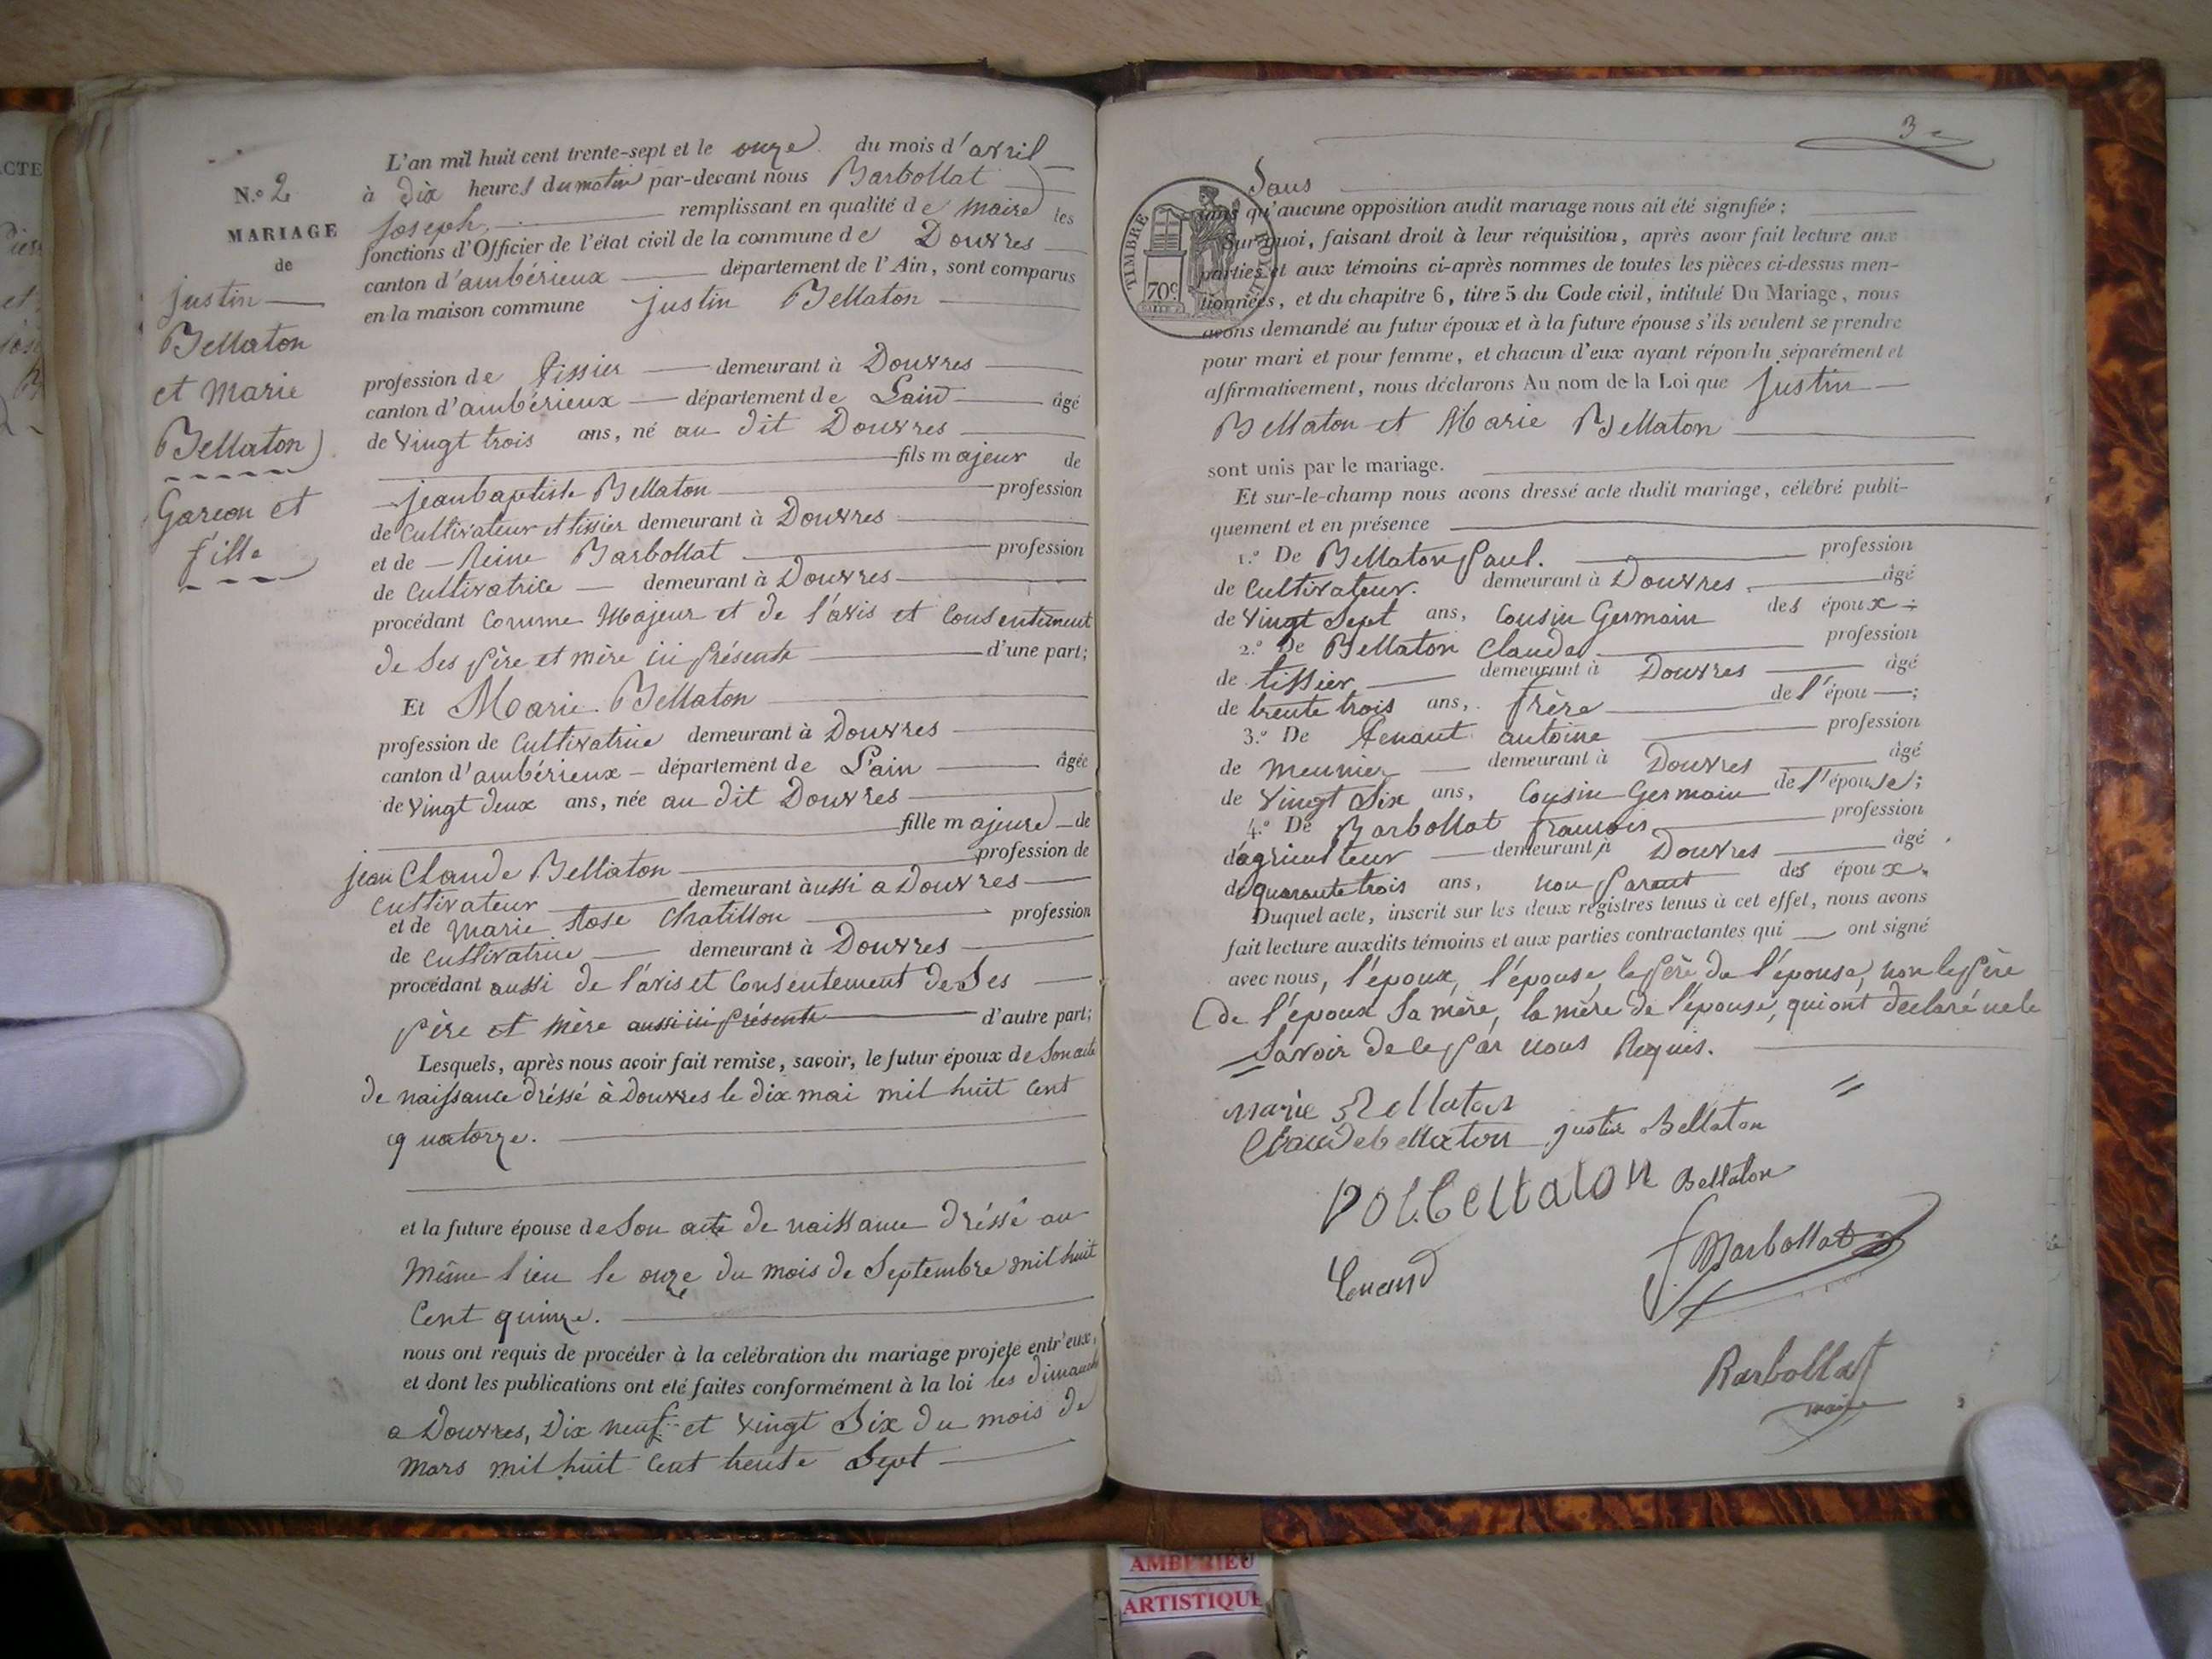 N.o 2
MARIAGE
de
justin
Bellaton
et marie
Bellaton
Garcon et
fille
L'an mil huit cent trente-sept et le onze du mois d'avril
à dix heures du matin par-devant nous Barbollat
joseph, remplissant en qualité de maire les
fonctions d'Officier de l'état civil de la commune de Douvres
canton d'ambérieux département de l'Ain, sont comparus
en la maison commune justin Bellaton
profession de tissier demeurant à Douvres
canton d'ambérieux département de Lain âgé
de vingt trois ans, né au dit Douvres
fils majeur de
jeanbaptiste Bellaton profession
de cultivateur et tissier demeurant à Douvres
et de Reine Barbollat profession
de cultivatrice demeurant à Douvres
procédant comme Majeur et de l'avis et consentement
de ses père et mère ici présente d'une part;
Et Marie Bellaton
profession de cultivatrice demeurant à Douvres
canton d'ambérieux département de L'ain âgée
de vingt deux ans, née au dit Douvres
fille majeure de
jean Claude Bellaton profession de
cultivateur demeurant àussi a Douvres
et de Marie Rose Chatillon profession
de cultivatrice demeurant à Douvres
procédant aussi de l'avis et consentement de ses
père et mère aussi ici présente d'autre part;
Lesquels, après nous avoir fait remise, savoir, le futur époux de son acte
de naissance dréssé à Douvres le dix mai mil huit cent
quatorze.
et la future épouse de son acte de naissance dréssé au
même lieu le onze du mois de Septembre mil huit
cent quinze.
nous ont requis de procéder à la celébration du mariage projeté entr'eux,
et dont les publications ont été faites conformément à la loi les dimanche
a Douvres, dix neuf et vingt six du mois de
mars mil huit cent trente sept
3
TIMBRE ROYAL
70c
Sans
sans qu'aucune opposition audit mariage nous ait été signifiée;
Sur quoi, faisant droit à leur réquisition, après avoir fait lecture aux
parties et aux témoins ci-après nommes de toutes les pièces ci-dessus men-
tionnées, et du chapitre 6, titre 5 du Code civil, intitulé Du Mariage, nous
avons demandé au futur époux et à la future épouse s'ils veulent se prendre
pour mari et pour femme, et chacun d'eux ayant répondu séparément et
affirmativement, nous déclarons Au nom de la Loi que justin
Bellaton et Marie Bellaton
sont unis par le mariage.
Et sur-le-champ nous avons dressé acte dudit mariage, célébré publi-
quement et en présence
1.o De Bellaton Paul. profession
de cultivateur. demeurant à Douvres âgé
de vingt sept ans, cousin Germain des époux;
2.o De Bellaton Claude profession
de tissier demeurant à Douvres âgé
de trente trois ans, frère de l'épou;
3.o De Tenant antoine profession
de meunier demeurant à Douvres âgé
de vingt six ans, cousin Germain de l'épouse;
4.o De Barbollat francois profession
d'agriculteur demeurant à Douvres âgé
de quarante trois ans, non parent des époux.
Duquel acte, inscrit sur les deux registres tenus à cet effet, nous avons
fait lecture auxdits témoins et aux parties contractantes qui ont signé
avec nous, l'époux, l'épouse, le père de l'épouse, non le père
de l'époux sa mère, la mère de l'épouse, qui ont déclaré ne le
savoir de le par nous Requis.
marie Bellaton
Claudebellaton justin Bellaton
Polbellaton Bellaton
Tenand f Barbollat
Barbollat
maire
AMBERIEU
ARTISTIQUE